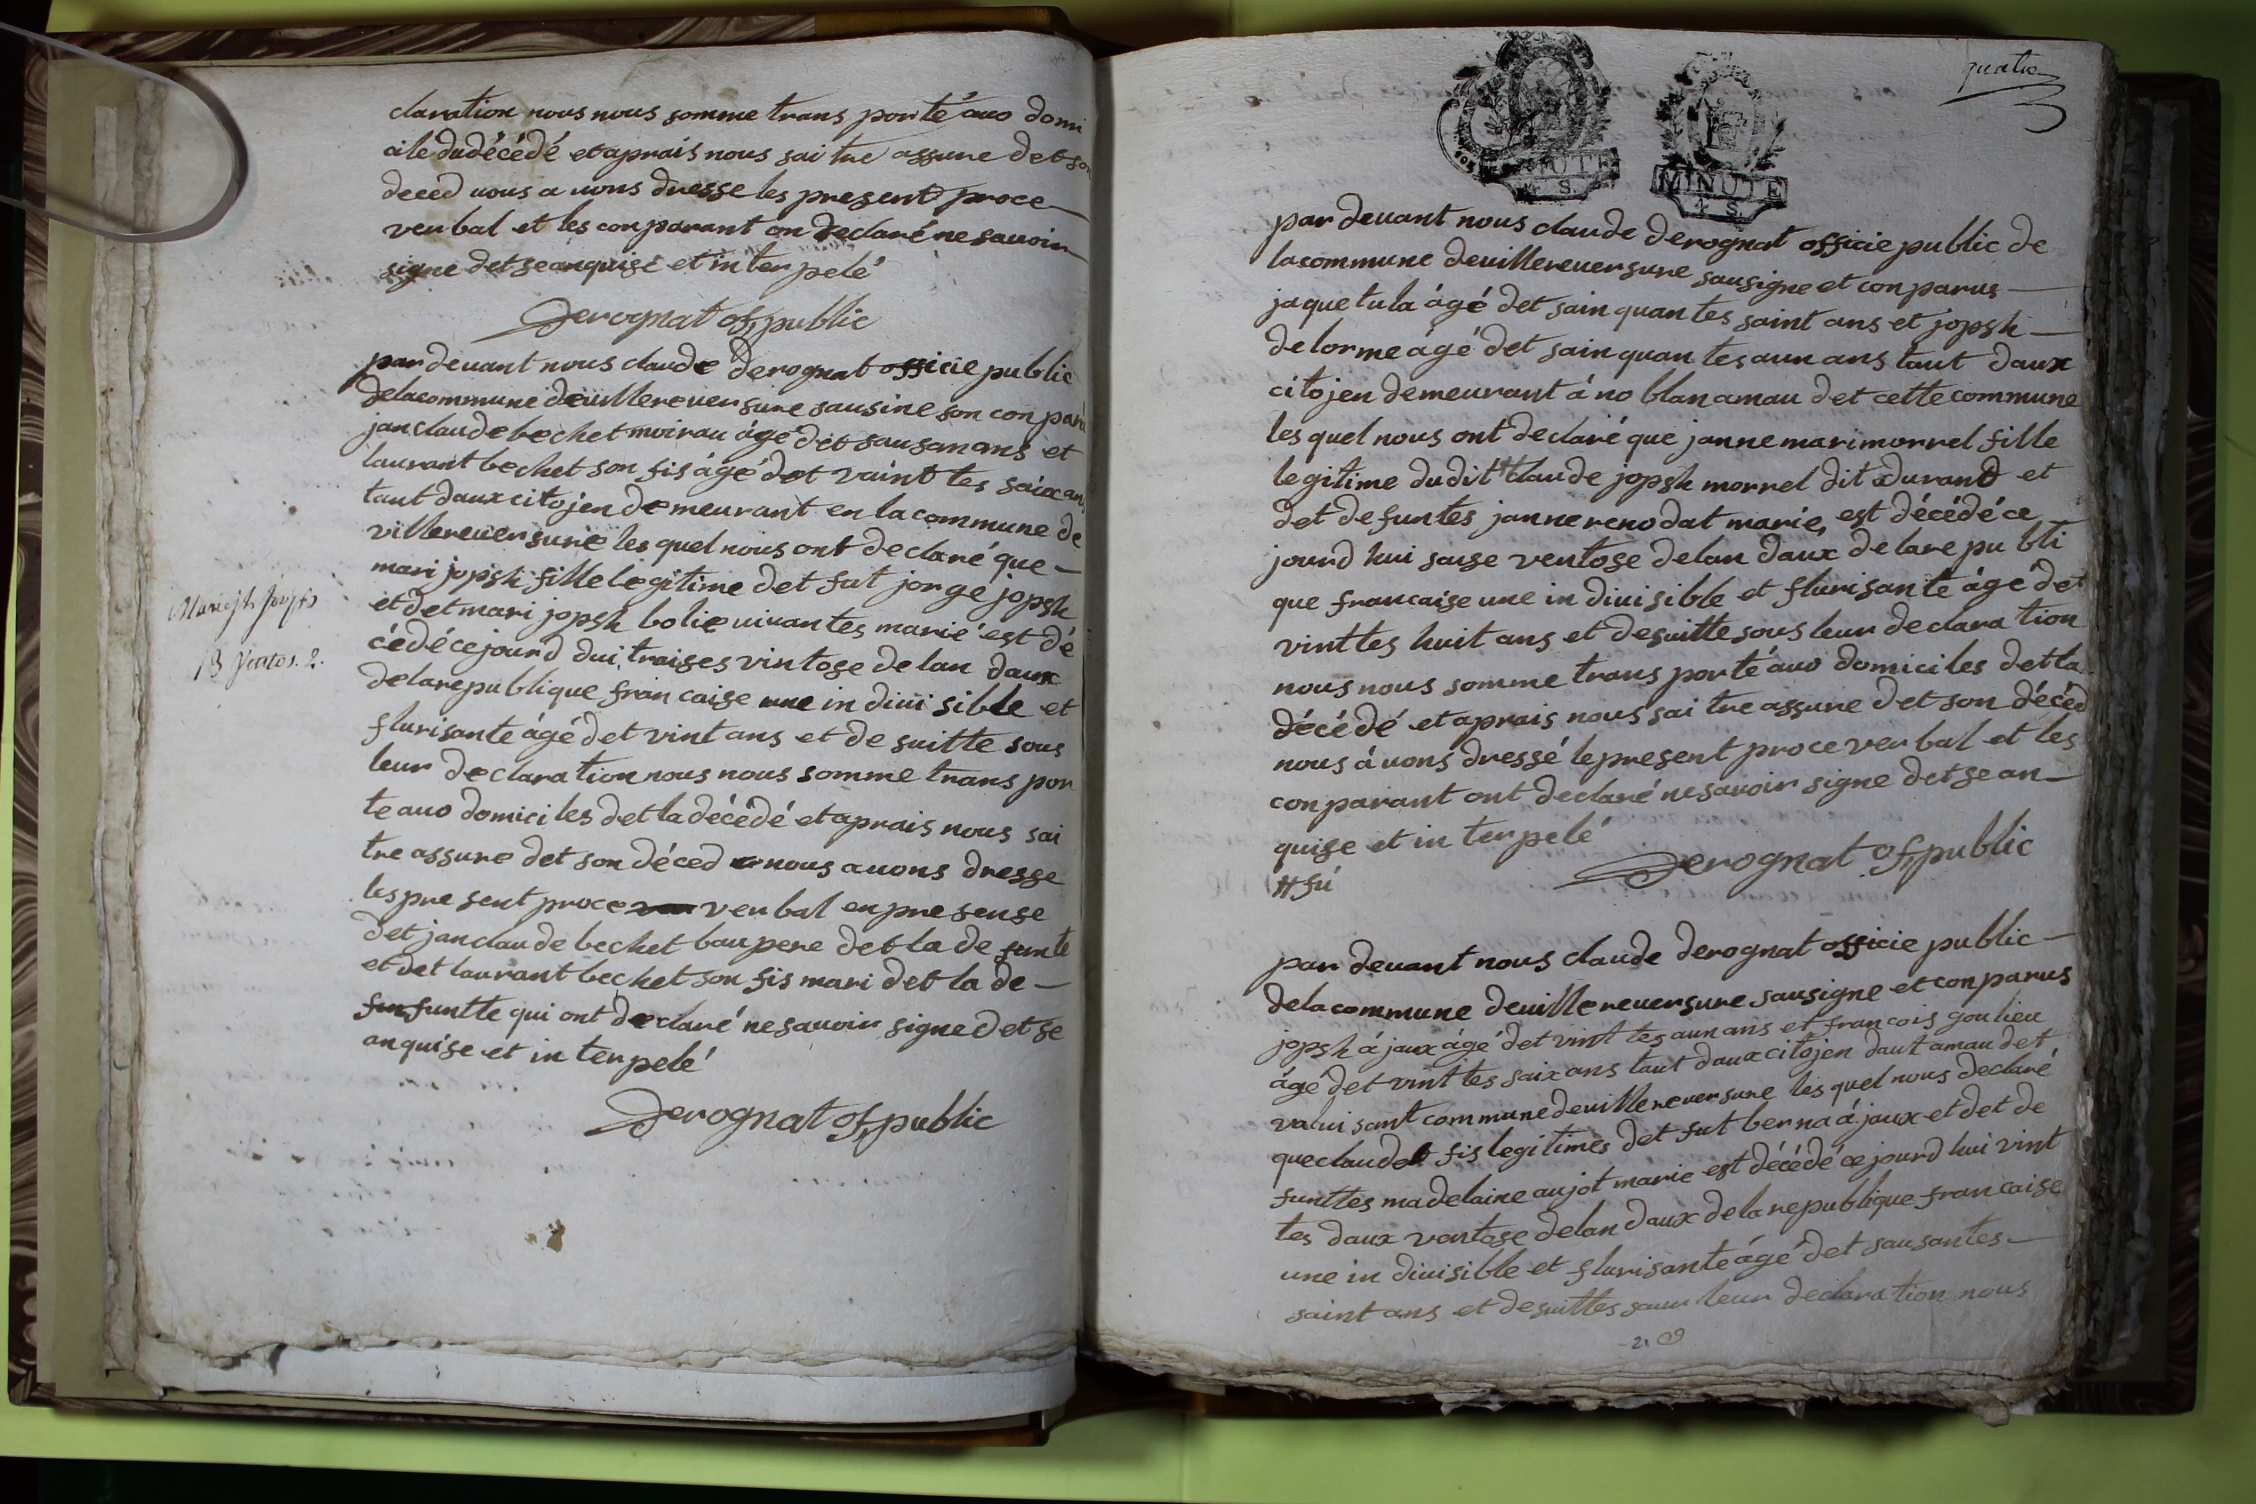 claration nous nous somme trans porté auo domi
cile du décédé et aprais nous sai tre assure det son
deced nous a uons dresse les present proce
ver bal et les conparant on declaré ne sauoir
signe det se anquise et in ter pelé
Derognat of, public
par devant nous claude derognat officie public
de la commune deuillereuersure sausine son conparu
jan claude bechet moirau ágé det sausan ans et
laurant bechet son fis ágé det vaint tes saix ans
taut daux citojen demeurant en la commune de
villereuersure les quel nous ont declaré que
mari jopsh fille legitime det fut jorge jopsh
et det mari jopsh bolie uiuantes marié est dé
cédé ce jourd dui traises vintose de lan daux
de la republique fran caise une in diui sible et
flurisante ágé det vint ans et de suitte sous
leur declaration nous nous somme trans por
te auo domici les det la décédé et aprais nous sai
tre assure det son déced nous auons dresse
les pre sent proce ver bal en pre sense
det jan claude bechet bau pere det la de funte
et det laurant bechet son fis mari det la de
funtte qui ont declaré ne sauoir signe det se
anquise et in ter pelé
Derognat of, public
13 Ventos. 2.
quatre
MINUTE
4 S.
MINUTE
4 S.
par deuant nous claude derognat officie public de
la commune deuillereuersure sausigne et con parus
jaque tula ágé det sain quan tes saint ans et jopsh
delorme ágé det sain quan tes aun ans taut daux
citojen demeurant á no blan amau det cette commune
les quel nous ont declaré que janne mari morrel fille
legitime du dit # claude jopsh morrel dit durand et
det de funtes janne renodat marie, est décédé ce
jourd hui sause ventose de lan daux de la re pu bli
que francaise une in diuisible et flurisante ágé det
vint tes huit ans et de suitte sous leur declara tion
nous nous somme trans porté auo domici les det la
décédé et aprais nous sai tre assure det son décéd
nous á uons dressé le present proce ver bal et les
con parant ont declaré ne sauoir signe det se an
quise et in ter pelé
Derognat of, public
# fú
par deuant nous claude derognat officie public
de la commune deuillereuersure sausigne et con parus
jopsh á jaux ágé det vint tes aun ans et francois goulieu
ágé det vint tes saix ans taut daux citojen daut amau det
valui sant commune deuillereuersure les quel nous declaré
que claude fis legitimes det fut berna á jaux et det de
funttes madelaine aujot marie est décédé ce jourd hui vint
tes daux ventose de lan daux de la republique francaise
une in diuisible et flurisante ágé det sausantes
saint ans et de suittes saur leur declara tion nous